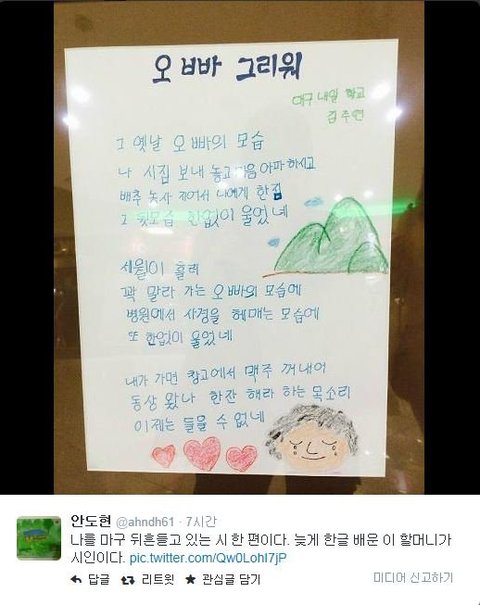 오빠 그리워
대구 내일 학교
김주연
그 옛날 오빠의 모습
나 시집 보내 놓고 마음 아파 하시고
배추 농사 지어서 나에게 한짐
그 뒷모습 한없이 울었네
세월이 흘러
꽉 말라 가는 오빠의 모습에
병원에서 사경을 헤매는 모습에
또 한없이 울었네
내가 가면 창고에서 맥주 꺼내어
동상 왔나 한잔 해라 하는 목소리
이제는 들을 수 없네
안도현 @ahndh61 · 7시간
나를 마구 뒤흔들고 있는 시 한 편이다. 늦게 한글 배운 이 할머니가
시인이다. pic.twitter.com/Qw0LohI7jP
답글 리트윗 관심글 담기 미디어 신고하기